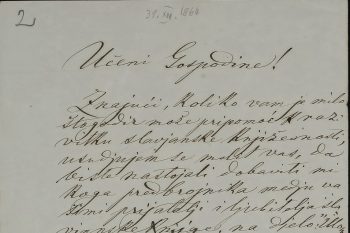 2
31. XII. 1864
Učeni Gospodine!
Znajući, koliko vam je milo
štogodir može pripomoći k razi
vitku slavjanske književnosti,
usudjujem se molit vas, da
biste nastojali dobaviti mi
koga predbrojnika medju va
šimi prijatelji i ljubitelji sla
vjanske knjige, na djelo: